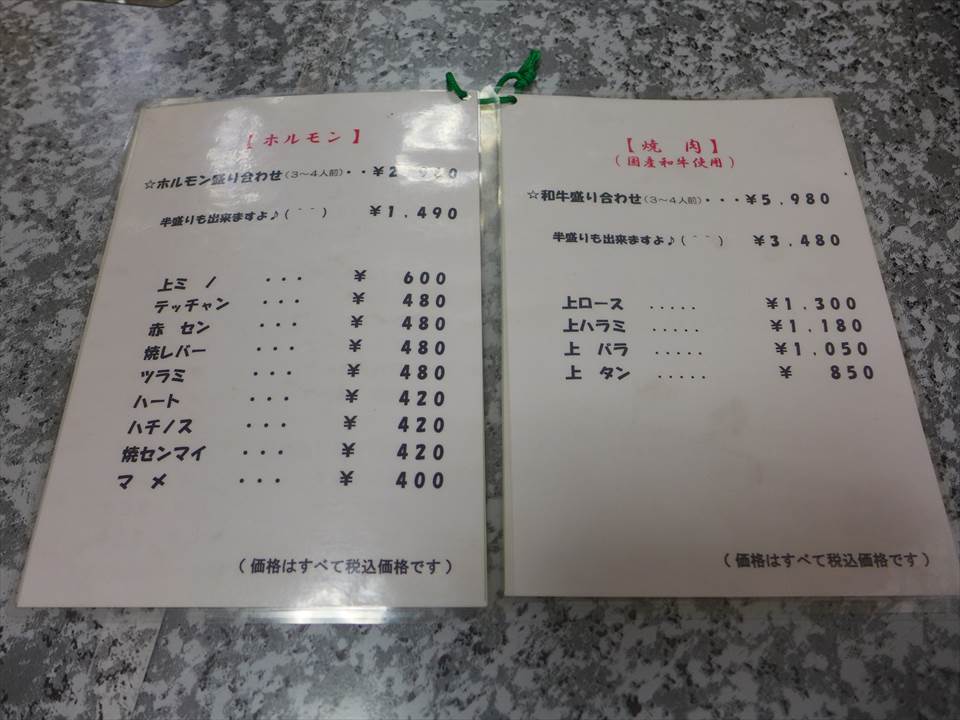 【ホルモン】
☆ホルモン盛り合わせ(3～4人前)・・¥2,920
半盛りも出来ますよ♪(＾＾) ¥1,490
上ミノ ・・・ ¥ 600
テッチャン ・・・ ¥ 480
赤セン ・・・ ¥ 480
焼レバー ・・・ ¥ 480
ツラミ ・・・ ¥ 480
ハート ・・・ ¥ 420
ハチノス ・・・ ¥ 420
焼センマイ ・・・ ¥ 420
マメ ・・・ ¥ 400
(価格はすべて税込価格です)
【焼肉】
(国産和牛使用)
☆和牛盛り合わせ(3～4人前)・・・¥5,980
半盛りも出来ますよ♪(＾＾) ¥3,480
上ロース ..... ¥1,300
上ハラミ ..... ¥1,180
上バラ ..... ¥1,050
上タン ..... ¥ 850
(価格はすべて税込価格です)